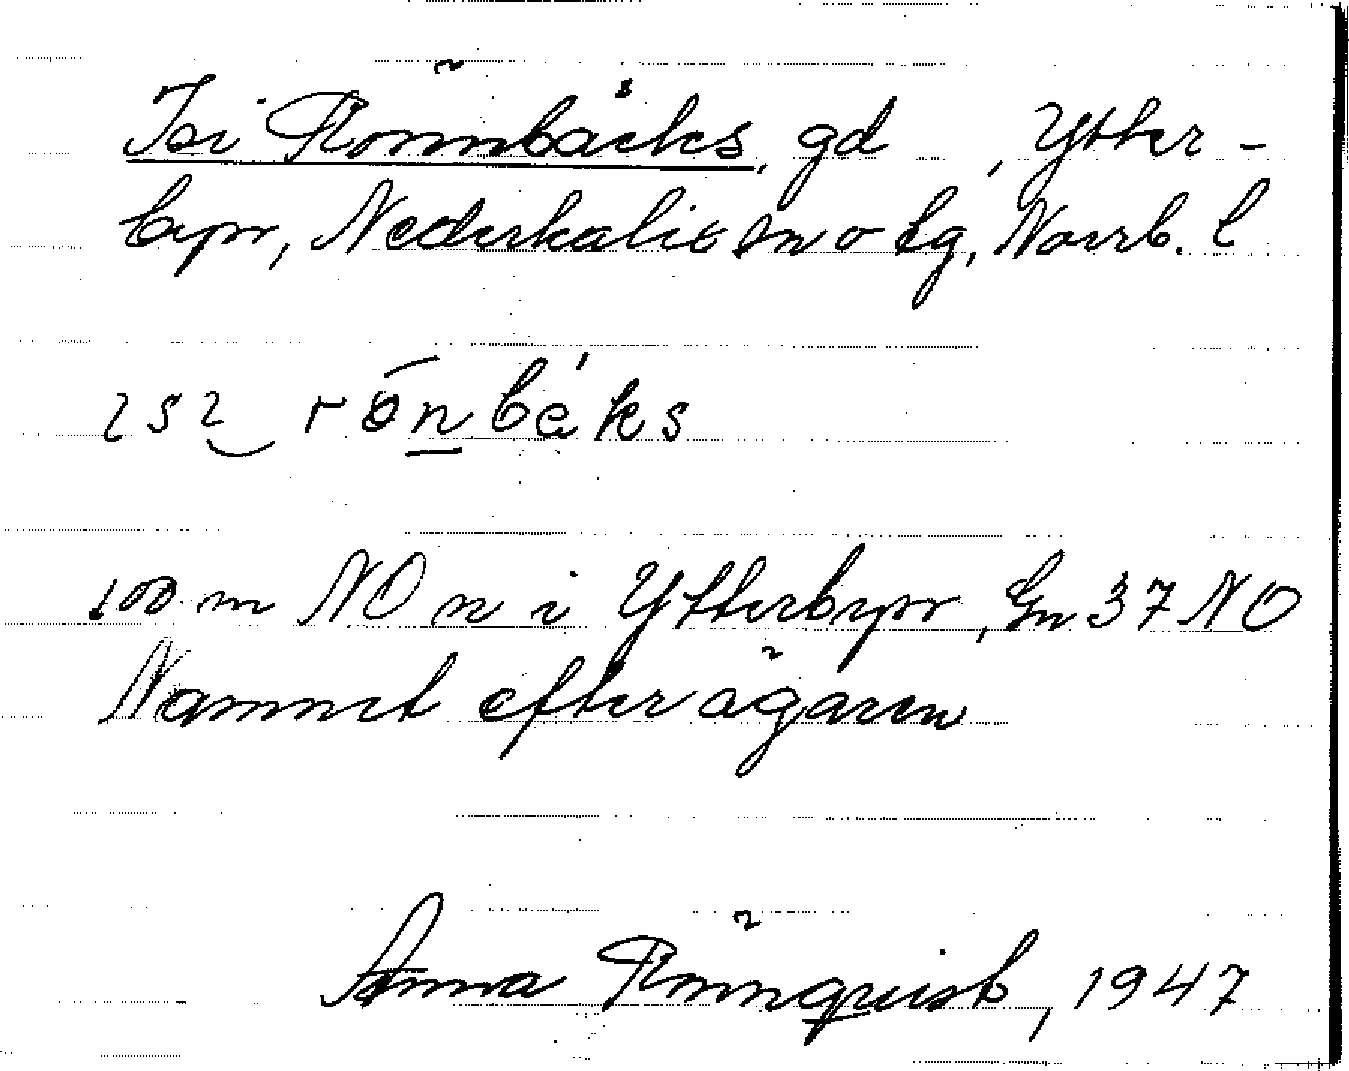 Isi Rönnbäcks, gd, Ytter-
byn, Nederkalix sn o tg, Norrb. l
ɩsɩ rōnbéks
100 m NO n i Ytterbyn, Gn 37 NO
Namnet efter ägaren
Anna Rönnquist, 1947